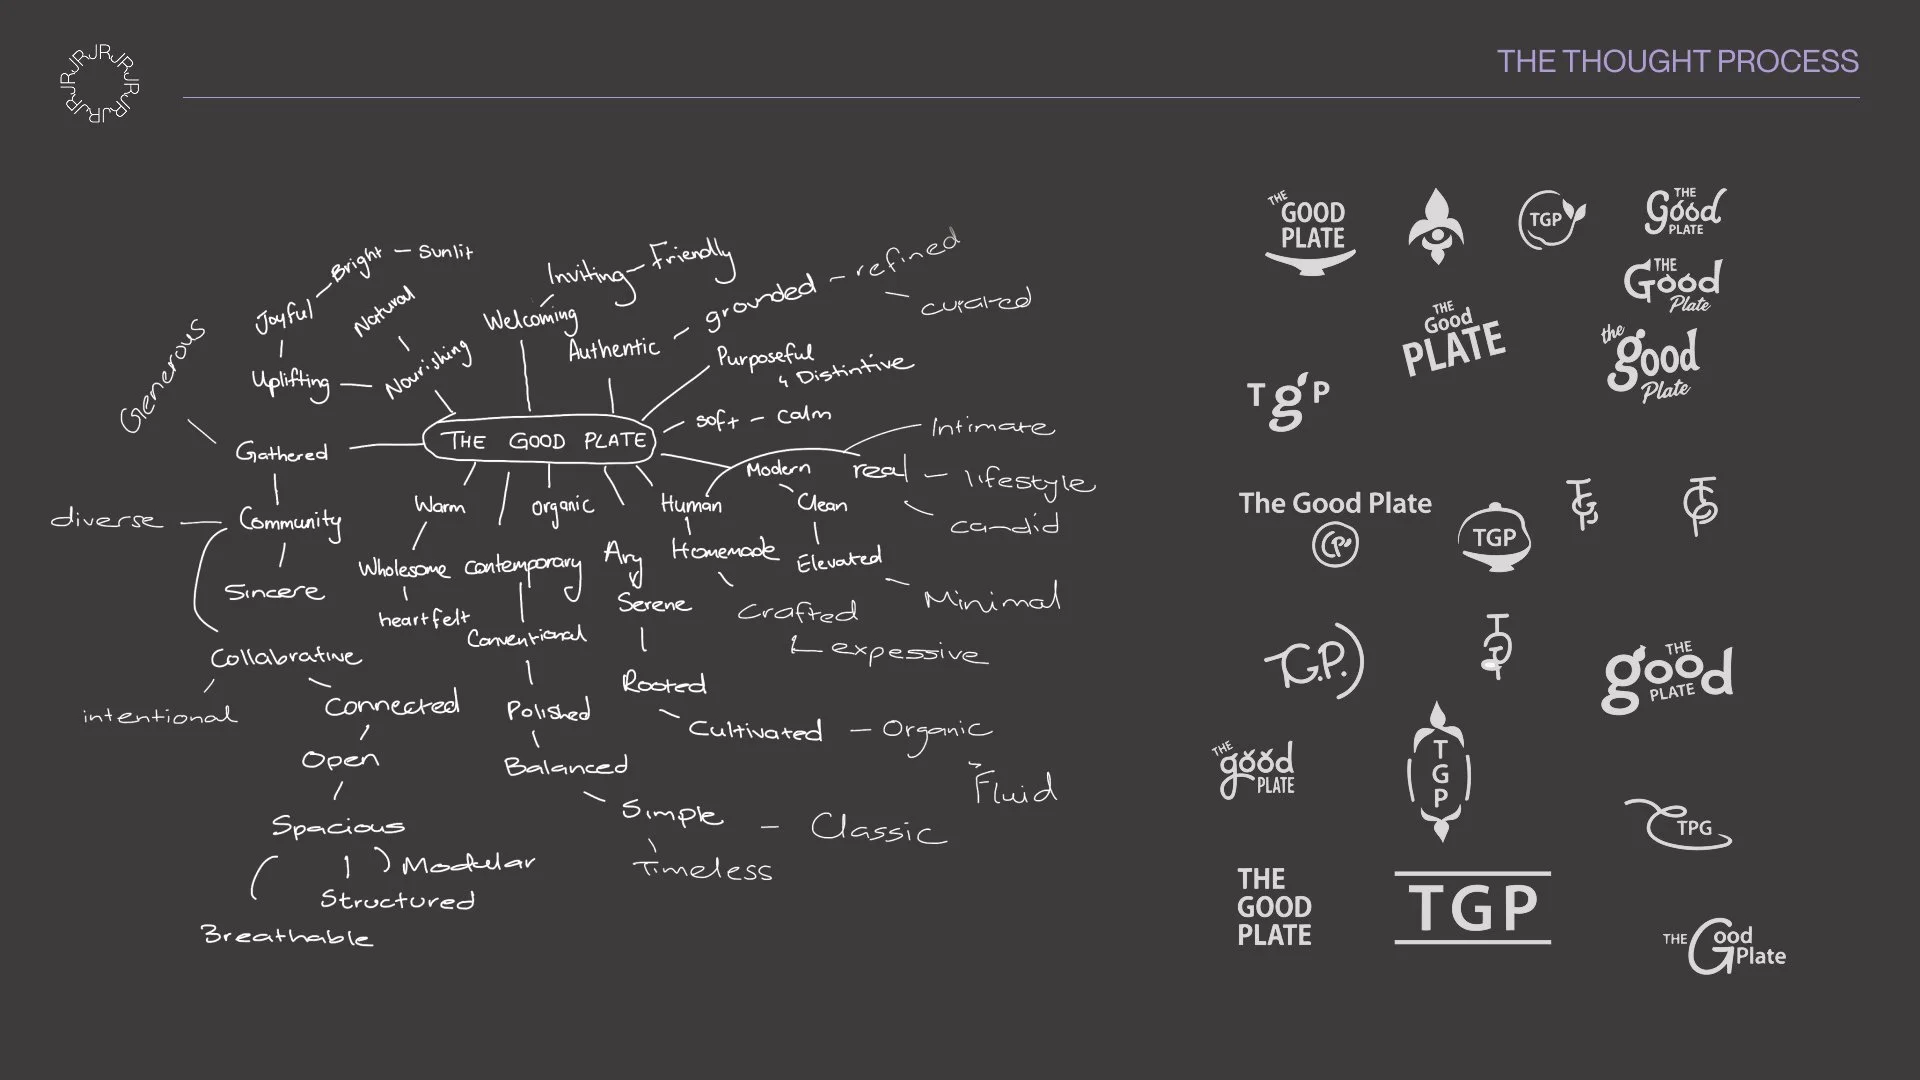 JR JR JR JR JR JR JR JR JR
THE THOUGHT PROCESS
THE GOOD PLATE
Generous
Joyful
Bright
Sunlit
Natural
Uplifting
Nourishing
Welcoming
Inviting
Friendly
Authentic
grounded
refined
curated
Purposeful
& Distintive
soft
calm
Modern
real
Intimate
lifestyle
candid
Clean
Elevated
Minimal
Human
Homemade
Crafted
expessive
Organic
Warm
Wholesome
heartfelt
Contemporary
Conventional
Polished
Balanced
Simple
Classic
Timeless
Airy
Serene
Rooted
Cultivated
Organic
Fluid
Gathered
Community
diverse
Sincere
Collabrative
intentional
Connected
Open
Spacious
Modular
Structured
Breathable
THE
GOOD
PLATE
TGP
THE
Good
PLATE
THE
Good
Plate
THE
Good
PLATE
the
good
Plate
T g P
The Good Plate
GP
TGP
TGP
TGP
T.G.P.
TGP
THE
good
PLATE
THE
good
PLATE
T
G
P
TPG
THE
GOOD
PLATE
TGP
THE Good
Plate